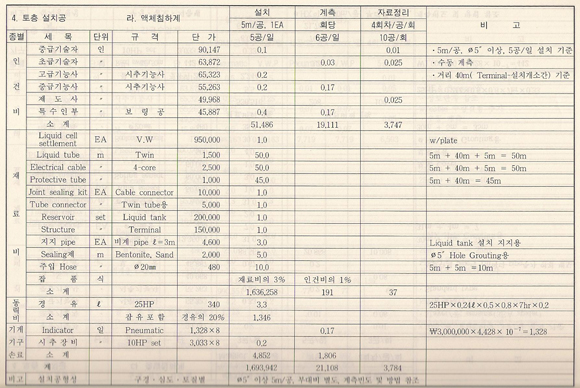 4. 토층 설치공 라. 액체침하계 설치 계측 자료정리 비 고
5m/공, 1EA 회당 4회차/공/회
종별 세 목 단위 규 격 단 가 5공/일 6공/일 10공/회
인 건 비
중급기술자 인 90,147 0.1 0.01 · 5m/공, ø5″ 이상, 5공/일 설치 기준
초급기술자 〃 63,872 0.03 0.025 · 수동 계측
고급기능사 〃 시추기능사 65,323 0.2 · 거리 40m ( Terminal-설치개소간) 기준
중급기능사 〃 시추기능사 55,263 0.2 0.17
제 도 사 〃 49,968 0.025
특 수 인 부 〃 보 링 공 45,887 0.4 0.17
소 계 51,486 19,111 3,747
재 료 비
Liquid cell settlement EA V.W 950,000 1.0 w/plate
Liquid tube m Twin 1,500 50.0 5m + 40m + 5m = 50m
Electrical cable 〃 4-core 2,500 50.0 5m + 40m + 5m = 50m
Protective tube 〃 1,000 45.0 5m + 40m = 45m
Joint sealing kit EA Cable connector 10,000 1.0
Tube connector 〃 Twin tube용 5,000 1.0
Reservoir set Liquid tank 200,000 1.0
Structure 〃 Terminal 150,000 1.0
지지 pipe EA 비계 pipe ℓ=3m 4,600 3.0 Liquid tank 설치 지지용
Sealing재 m Bentonite, Sand 2,000 5.0 ø5″ Hole Grouting용
주입 Hose 〃 ø20㎜ 480 10.0 5m + 5m =10m
잡 품 식 재료비의 3% 인건비의 1%
소 계 1,636,258 191 37
동력비 경 유 ℓ 25HP 340 3.3 25HP×0.24ℓ×0.5×0.8×7hr×0.2
소 계 잡유 포함 경유의 20% 1,346
기계 Indicator 일 Pneumatic 1,328×8 0.17 ₩3,000,000×4,428×10⁻⁷=1,328
기구 시 추 장 비 〃 10HP set 3,033×8 0.2
손료 소 계 4,852 1,806
계 1,693,942 21,108 3,784
비고 설치공형성 구경·심도·토질별 ø5″ 이상 5m/공, 부대비 별도, 계측빈도 및 방법 참조